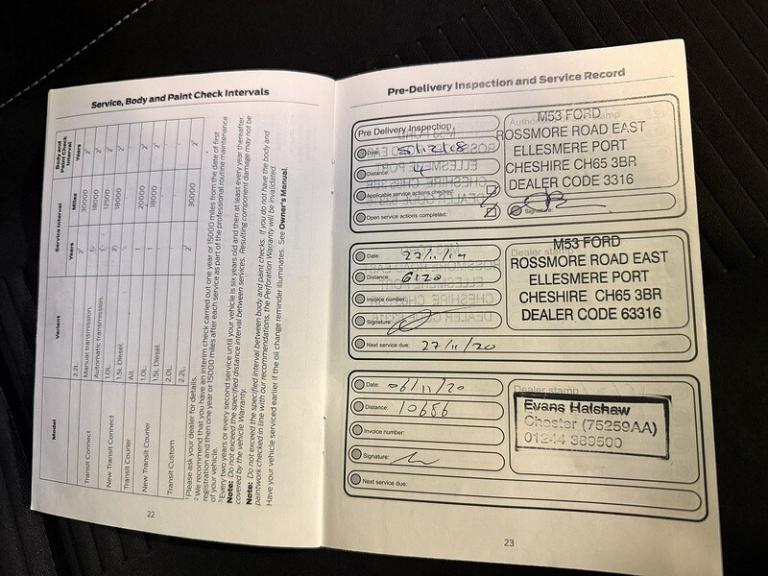 Service, Body and Paint Check Intervals
Model
Variant
Service Interval
Body and Paint Check Interval
Years
Miles
Years
2.2L
Transit Connect
Manual transmission
30000
2²
Automatic transmission
18000
2²
New Transit Connect
1.0L
12500
2²
1.5L Diesel
18000
2²
Transit Courier
All
New Transit Courier
1.0L
1
20000
1.5L Diesel
1
18000
Transit Custom
2.0L
2.2L
2²
30000
2²
¹ Please ask your dealer for details.
² We recommend that you have an interim check carried out one year or 15000 miles from the date of first
registration and then one year or 15000 miles after each service as part of the professional routine maintenance
of your vehicle.
³ Every two years or every second service until your vehicle is six years old and then at least every year thereafter.
Note: Do not exceed the specified distance interval between services. Resulting component damage may not be
covered by the vehicle Warranty.
Note: Do not exceed the specified interval between body and paint checks. If you do not have the body and
paintwork checked in line with our recommendations, the Perforation Warranty will be invalidated.
Have your vehicle serviced earlier if the oil change reminder illuminates. See Owner's Manual.
22
Pre-Delivery Inspection and Service Record
Pre Delivery Inspection
Distance: 4
Applicable service actions checked:
Open service actions completed:
M53 FORD
ROSSMORE ROAD EAST
ELLESMERE PORT
CHESHIRE CH65 3BR
DEALER CODE 3316
Signature:
Date: 27/11/19
Distance: 6120
Invoice number:
Signature:
Next service due: 27/11/20
Dealer stamp
M53 FORD
ROSSMORE ROAD EAST
ELLESMERE PORT
CHESHIRE CH65 3BR
DEALER CODE 63316
Date: 06/11/20
Distance: 10686
Invoice number:
Signature:
Next service due:
Dealer stamp
Evans Halshaw
Chester (75259AA)
01244 389500
23